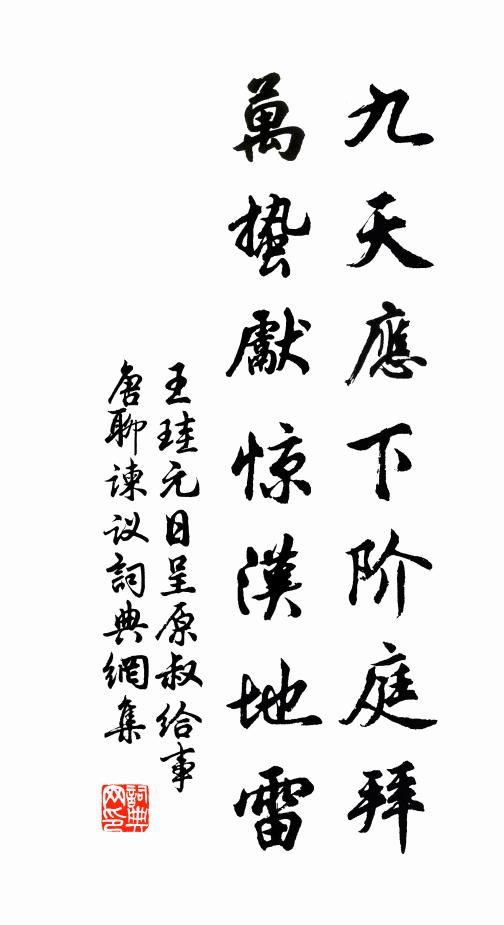 九天應下阶庭拜
萬蟄獻惊漢地雷
王珪元日呈原叔给事
唐聊谏议詞典網集
詞典网印